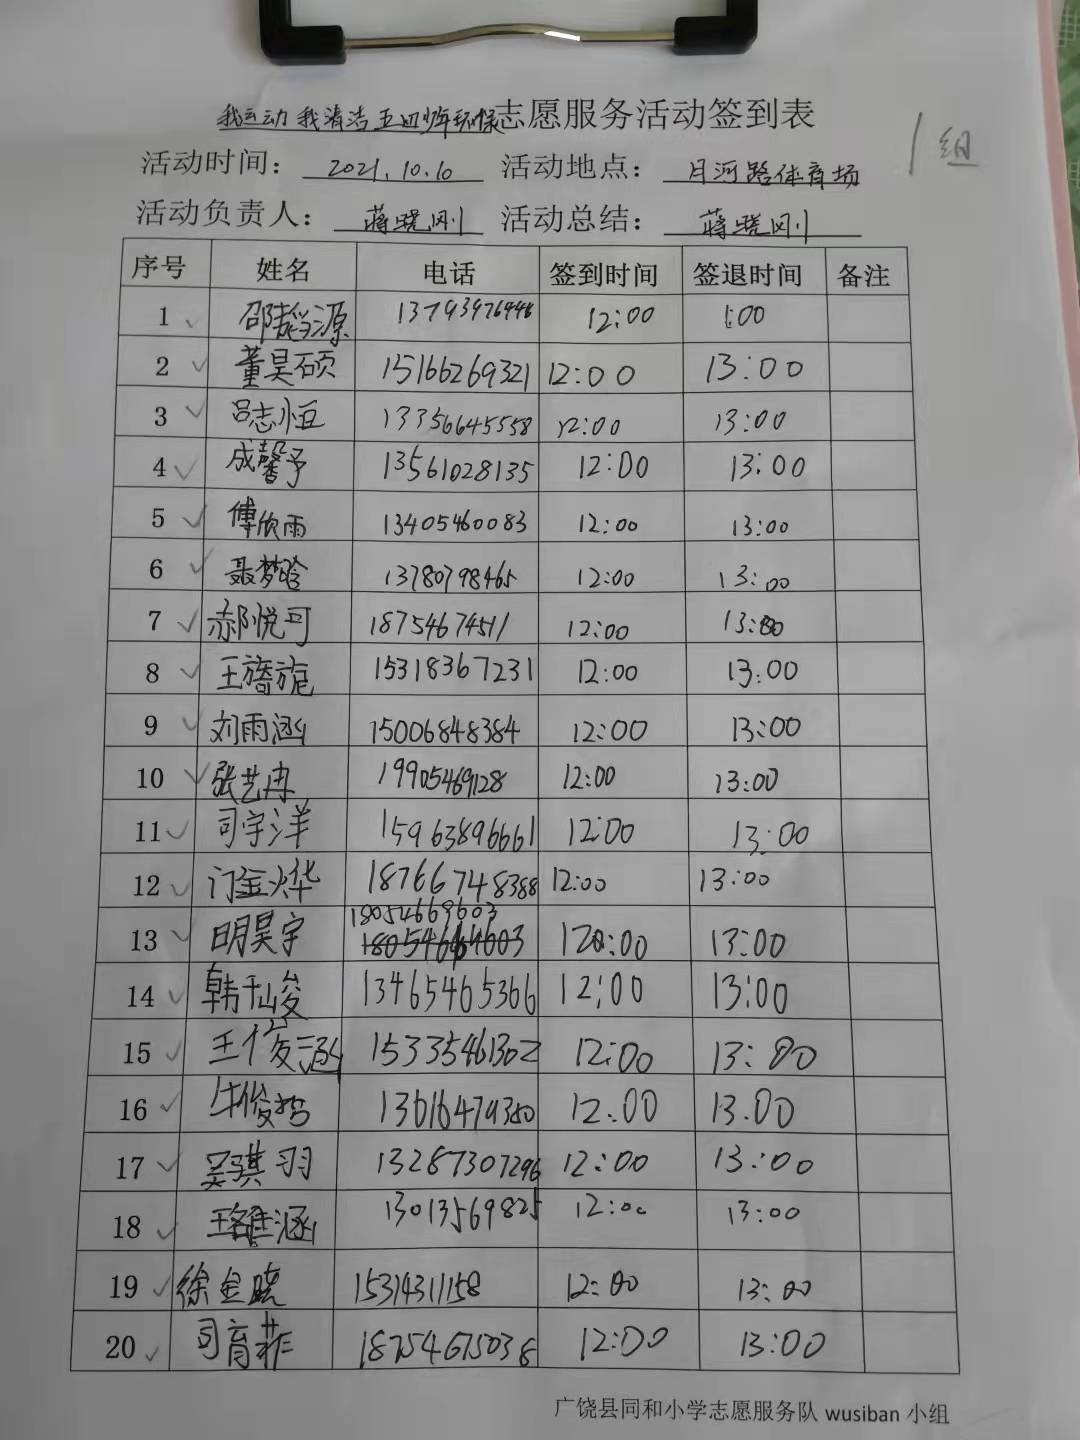 我运动 我清洁 五四少年环保志愿服务活动签到表
1组
活动时间： 2021.10.10 活动地点： 月河路体育场
活动负责人： 蒋晓刚 活动总结： 蒋晓刚
序号 姓名 电话 签到时间 签退时间 备注
1 邵韬源 13793976446 12:00 1:00
2 董昊硕 15166269321 12:00 13:00
3 吕志恒 13356645558 12:00 13:00
4 成馨予 13561028135 12:00 13:00
5 傅欣雨 13405460083 12:00 13:00
6 聂梦晗 13780798465 12:00 13:00
7 郝悦可 18754674511 12:00 13:00
8 王旖旎 15318367231 12:00 13:00
9 刘雨涵 15006848384 12:00 13:00
10 张艺冉 19905469128 12:00 13:00
11 司宇洋 15963896661 12:00 13:00
12 门金烨 18766748388 12:00 13:00
18054669603
13 明昊宇 120:00 13:00
14 韩千峻 13465465366 12:00 13:00
15 王俊涵 15335461302 12:00 13:00
16 牛俊皓 13616479380 12:00 13:00
17 吴骐羽 13287307296 12:00 13:00
18 王雒涵 13013569825 12:00 13:00
19 徐金晓 15314311158 12:00 13:00
20 司育菲 18754675038 12:00 13:00
广饶县同和小学志愿服务队 wusiban 小组